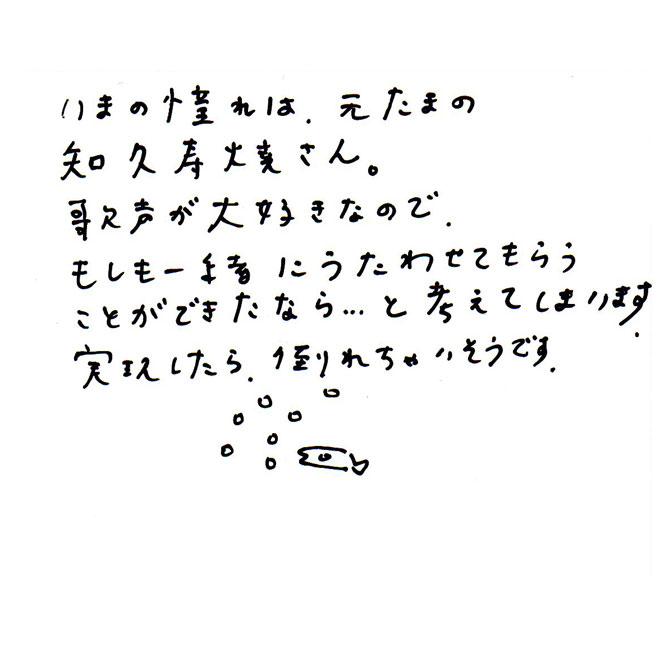 いまの憧れは、元たまの
知久寿焼さん。
歌声が大好きなので、
もしも一緒にうたわせてもらう
ことができたなら…と考えてしまいます。
実現したら、倒れちゃいそうです。